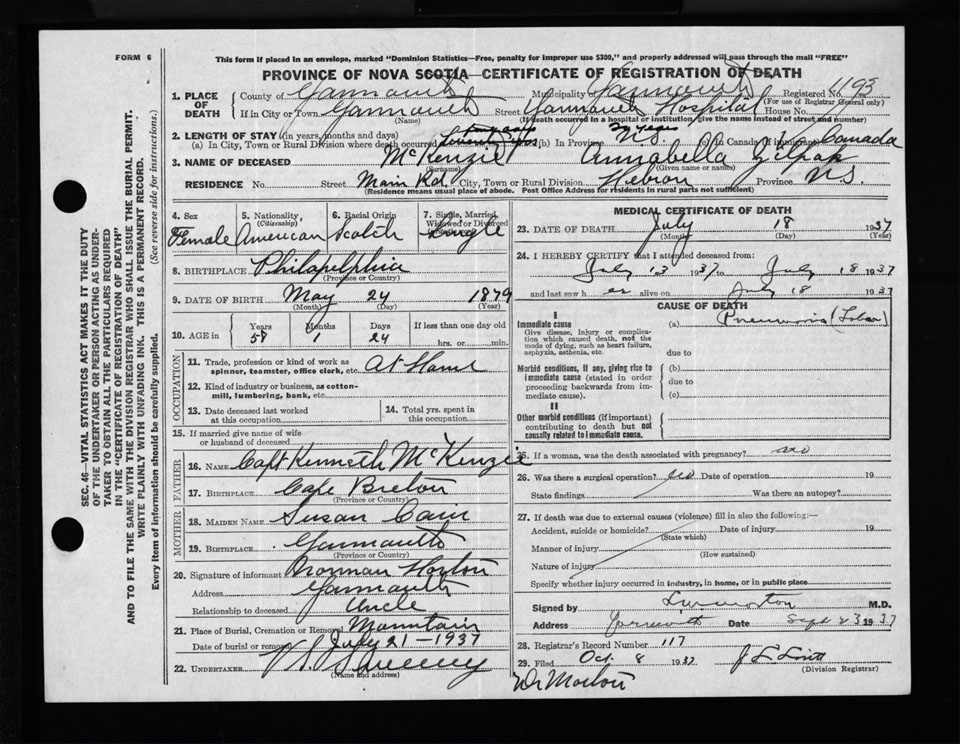 FORM 6
This form if placed in an envelope, marked "Dominion Statistics—Free, penalty for improper use $300," and properly addressed will pass through the mail "FREE"
PROVINCE OF NOVA SCOTIA—CERTIFICATE OF REGISTRATION OF DEATH
1. PLACE OF DEATH
County of Yarmouth Municipality of Yarmouth Registered No. 1193
(For use of Registrar General only)
If in City or Town Yarmouth Street Yarmouth Hospital House No.
(Name) (If death occurred in hospital or institution, give name instead of street and number)
2. LENGTH OF STAY (in years, months and days)
(a) In City, Town or Rural Division where death occurred (b) In Province N.S. 39 years (c) In Canada (if immigrant) Canada
3. NAME OF DECEASED McKenzie Annabella
(Surname) (Given name or names)
RESIDENCE No. Street Main Rd. City, Town or Rural Division Hebron Province N.S.
(Residence means usual place of abode. Post Office Address for residents in rural parts not sufficient)
4. Sex
Female
5. Nationality, (Citizenship)
American
6. Racial Origin
Scotch
7. Single, Married, Widowed or Divorced
Single
8. BIRTHPLACE Philadelphia
(Province or Country)
9. DATE OF BIRTH May 24 1879
(Month) (Day) (Year)
10. AGE in
Years Months Days If less than one day old
58 1 24 hrs. or min.
OCCUPATION
11. Trade, profession or kind of work as spinner, teamster, office clerk, etc. At Home
12. Kind of industry or business, as cotton-mill, lumbering, bank, etc.
13. Date deceased last worked at this occupation
14. Total yrs. spent in this occupation
15. If married give name of wife or husband of deceased
FATHER
16. NAME Capt Kenneth McKenzie
17. BIRTHPLACE Cape Breton
(Province or Country)
MOTHER
18. MAIDEN NAME Susan Cain
19. BIRTHPLACE Yarmouth
(Province or Country)
20. Signature of informant Norman Horton
Address Yarmouth
Relationship to deceased Uncle
21. Place of Burial, Cremation or Removal Mountain
Date of burial or removal July 21-1937
22. UNDERTAKER Sweeny
(Name and address)
MEDICAL CERTIFICATE OF DEATH
23. DATE OF DEATH July 18 1937
(Month) (Day) (Year)
24. I HEREBY CERTIFY that I attended deceased from:
July 13 1937 to July 18 1937
and last saw her alive on July 18 1937
CAUSE OF DEATH
I
Immediate cause
Give disease, injury or complication which caused death, not the mode of dying, such as heart failure, asphyxia, asthenia, etc.
(a) Pneumonia (Lobar)
due to
Morbid conditions, if any, giving rise to immediate cause (stated in order proceeding backwards from immediate cause).
(b)
due to
(c)
II
Other morbid conditions (if important) contributing to death but not causally related to immediate cause.
25. If a woman, was the death associated with pregnancy? no
26. Was there a surgical operation? no Date of operation 19
State findings Was there an autopsy?
27. If death was due to external causes (violence) fill in also the following:—
Accident, suicide or homicide? Date of injury 19
(State which)
Manner of injury
(How sustained)
Nature of injury
Specify whether injury occurred in industry, in home, or in public place
Signed by M.D.
Address Yarmouth Date Sept 23 1937
28. Registrar's Record Number 117
29. Filed Oct. 8 1937
(Division Registrar)
Dr Morton
SEC. 46—VITAL STATISTICS ACT MAKES IT THE DUTY
OF THE UNDERTAKER OR PERSON ACTING AS UNDER-
TAKER TO OBTAIN ALL THE PARTICULARS REQUIRED
IN THE "CERTIFICATE OF REGISTRATION OF DEATH"
AND TO FILE THE SAME WITH THE DIVISION REGISTRAR WHO SHALL ISSUE THE BURIAL PERMIT.
WRITE PLAINLY WITH UNFADING INK. THIS IS A PERMANENT RECORD.
Every item of information should be carefully supplied. (See reverse side for instructions.)